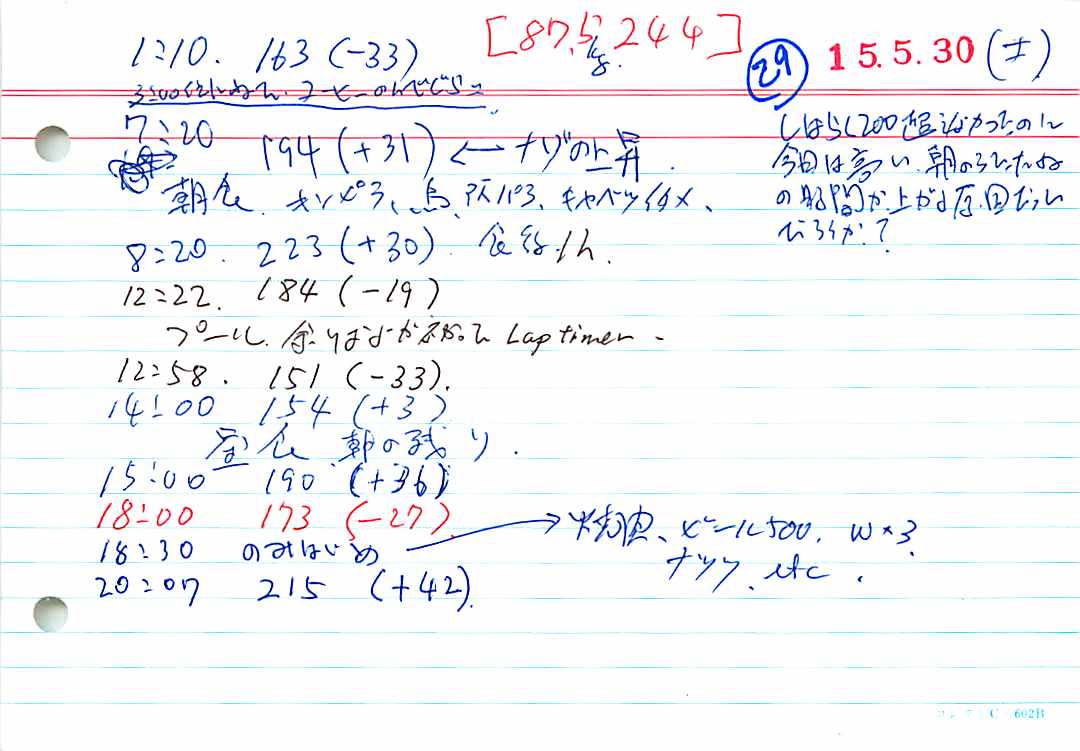 1:10. 163 (-33)
[87.5kg. 244]
29 15.5.30 (土)
3:00くらいねて、コーヒーのんで
7:20
194 (+31) ← ナゾの上昇.
朝食. オンペラ、鳥、アスパラ、キャベツイタメ、
8:20. 223 (+30). 食後1h.
12:22. 184 (-19)
プール. Lap timer.
12:58. 151 (-33).
14:00 154 (+3)
昼食 朝の残り.
15:00 190 (+36)
18:00 173 (-27)
18:30 のみはじめ → 焼魚、ビール500. W×3.
ナッツ、etc.
20:07 215 (+42).
しばらく200超えなかったのに
今回は高い. 朝の
の時間が上がる原因
だろうか?
C-602B